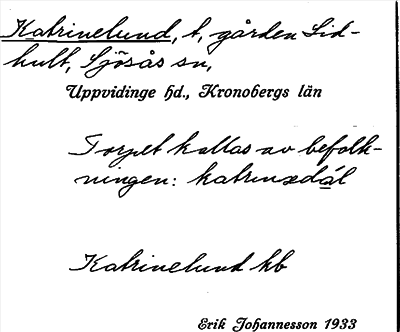 Katrinelund, t, gården Lid-
hult, Sjösås sn,
Uppvidinge hd., Kronobergs län
Torpet kallas av befolk-
ningen: katrinədá̱l
Katrinelund kb
Erik Johannesson 1933